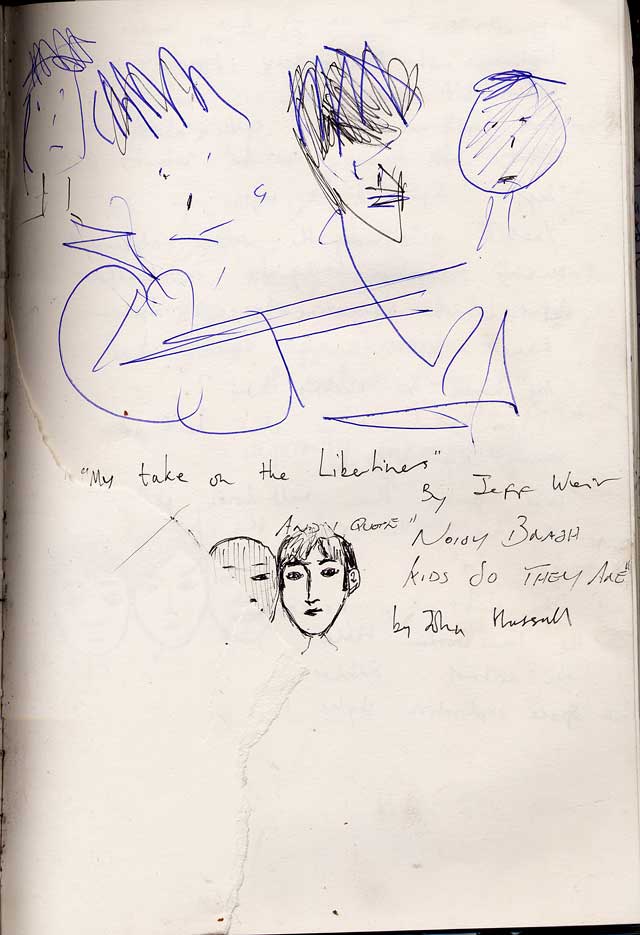 "My take on the Libertines"
By Jeff Weir
AND QUOTE "NOISY BRASH
KIDS SO THEY ARE"
by John Hassall